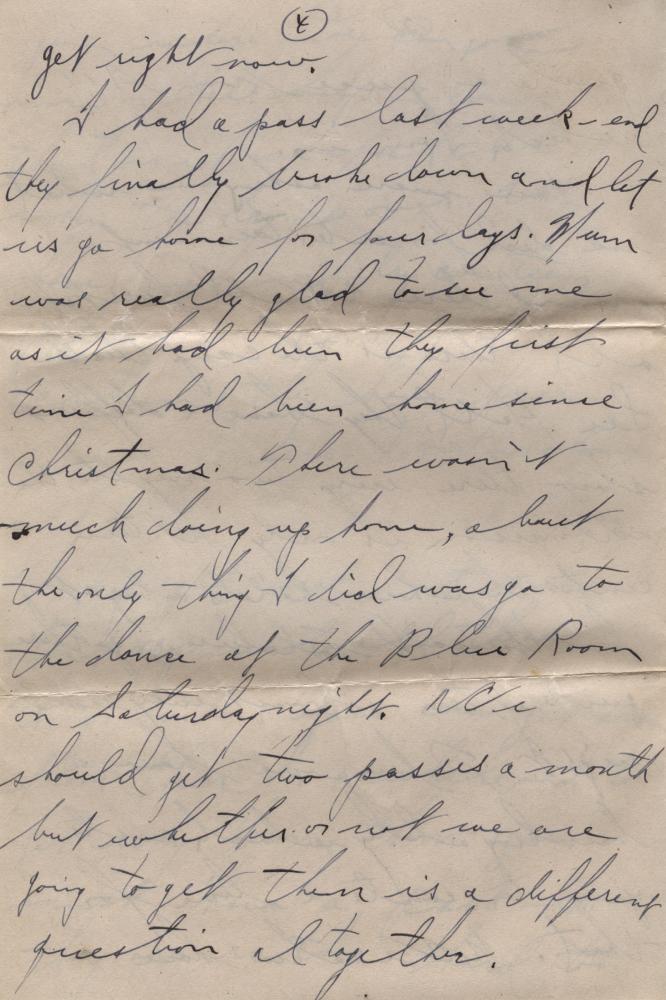 4
get right now.
I had a pass last week-end
they finally broke down and let
us go home for four days. Mum
was really glad to see me
as it had been they first
time I had been home since
Christmas. There wasn't
much doing up home, about
the only thing I did was go to
the dance at the Blue Room
on Saturday night. We
should get two passes a month
but whether or not we are
going to get them is a different
question altogether.